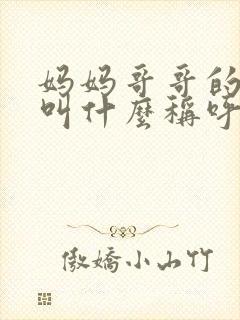 妈妈哥哥的
叫什麼稱呼
傲嬌小山竹